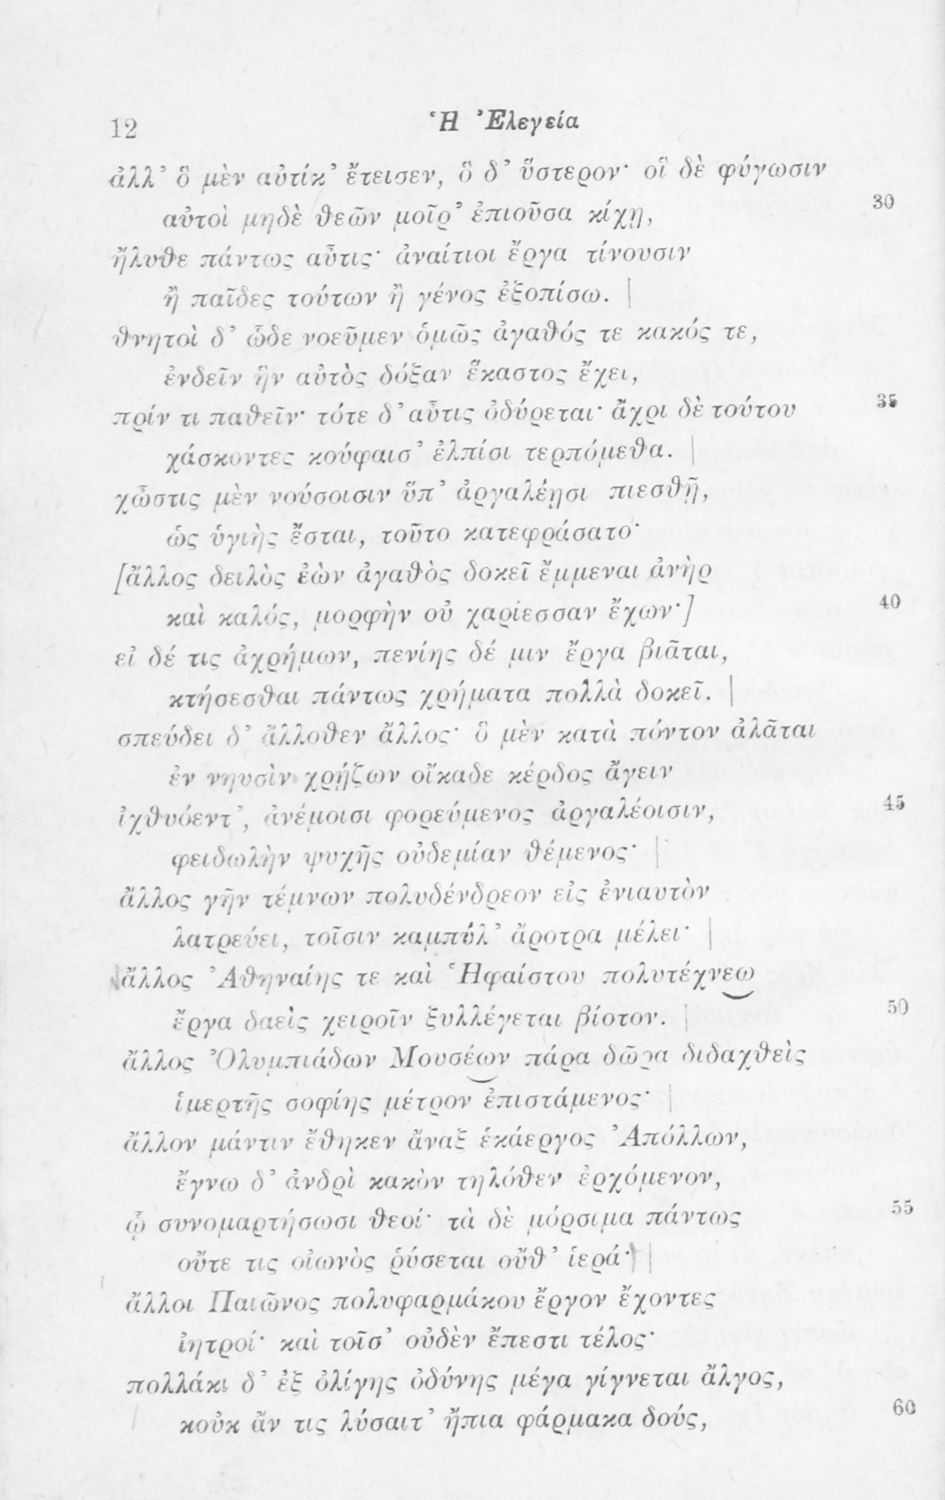 12 Ἡ Ἐλεγεία
ἀλλ’ ὃ μὲν αὐτίκ’ ἔτεισεν, ὃ δ’ ὕστερον· οἳ δὲ φύγωσιν
αὐτοὶ μηδὲ θεῶν μοῖρ’ ἐπιοῦσα κίχῃ, 30
ἤλυθε πάντως αὖτις· ἀναίτιοι ἔργα τίνουσιν
ἢ παῖδες τούτων ἢ γένος ἐξοπίσω. |
θνητοὶ δ’ ὧδε νοεῦμεν ὁμῶς ἀγαθός τε κακός τε,
ἐνδεῖν ἣν αὐτὸς δόξαν ἕκαστος ἔχει,
πρίν τι παθεῖν· τότε δ’ αὖτις ὀδύρεται· ἄχρι δὲ τούτου 35
χάσκοντες κούφαισ’ ἐλπίσι τερπόμεθα. |
χὦστις μὲν νούσοισιν ὕπ’ ἀργαλέῃσι πιεσθῇ,
ὡς ὑγιὴς ἔσται, τοῦτο κατεφράσατο·
[ἄλλος δειλὸς ἐὼν ἀγαθὸς δοκεῖ ἔμμεναι ἀνὴρ
καὶ καλός, μορφὴν οὐ χαρίεσσαν ἔχων·] 40
εἰ δέ τις ἀχρήμων, πενίης δέ μιν ἔργα βιᾶται,
κτήσεσθαι πάντως χρήματα πολλὰ δοκεῖ. |
σπεύδει δ’ ἄλλοθεν ἄλλος· ὃ μὲν κατὰ πόντον ἀλᾶται
ἐν νηυσὶν χρῄζων οἴκαδε κέρδος ἄγειν
ἰχθυόεντ’, ἀνέμοισι φορεύμενος ἀργαλέοισιν, 45
φειδωλὴν ψυχῆς οὐδεμίαν θέμενος· |
ἄλλος γῆν τέμνων πολυδένδρεον εἰς ἐνιαυτὸν
λατρεύει, τοῖσιν καμπύλ’ ἄροτρα μέλει· |
ἄλλος Ἀθηναίης τε καὶ Ἡφαίστου πολυτέχνεω
ἔργα δαεὶς χειροῖν ξυλλέγεται βίοτον. | 50
ἄλλος Ὀλυμπιάδων Μουσέων πάρα δῶρα διδαχθεὶς
ἱμερτῆς σοφίης μέτρον ἐπιστάμενος· |
ἄλλον μάντιν ἔθηκεν ἄναξ ἑκάεργος Ἀπόλλων,
ἔγνω δ’ ἀνδρὶ κακὸν τηλόθεν ἐρχόμενον,
ᾧ συνομαρτήσωσι θεοί· τὰ δὲ μόρσιμα πάντως 55
οὔτε τις οἰωνὸς ῥύσεται οὔθ’ ἱερά· |
ἄλλοι Παιῶνος πολυφαρμάκου ἔργον ἔχοντες
ἰητροί· καὶ τοῖσ’ οὐδὲν ἔπεστι τέλος·
πολλάκι δ’ ἐξ ὀλίγης ὀδύνης μέγα γίγνεται ἄλγος,
κοὐκ ἄν τις λύσαιτ’ ἤπια φάρμακα δούς, 60